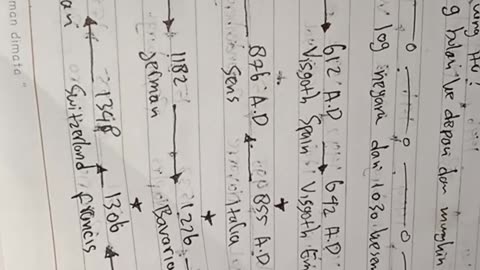 g bulan ke depan dan mungkin
log negara dari 1030
612 A.D → 642 A.D
Visgoth Spain Visgoth
876 A.D ← 855 A.D
Sens Italia
1182 → 1276
german Bavaria
1348 ← 1306 ←
Switzerland Francis
an
man dimata "